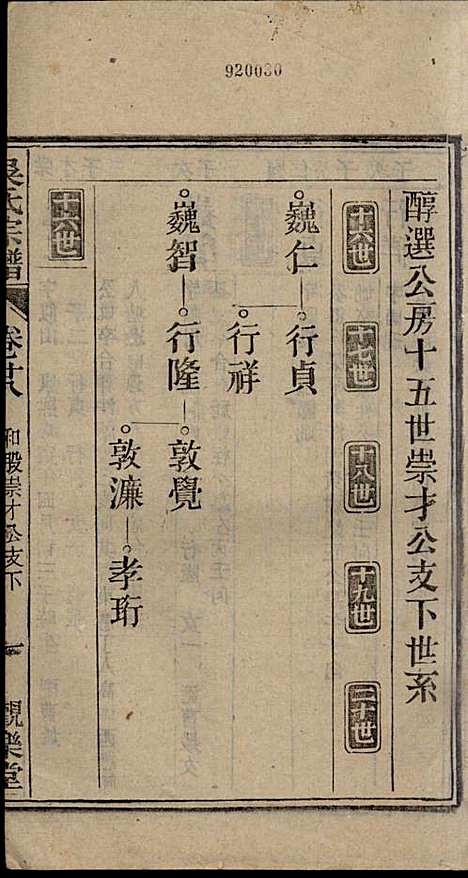 920030
醇選公房十五世崇才公支下世系
十六世
十七世
十八世
十九世
二十世
巍仁
行貞
行祥
巍智
行隆
敦覺
敦濂
孝珩
十六世
吳氏宗譜
卷廿八
和股崇才公支下
一
觀樂堂